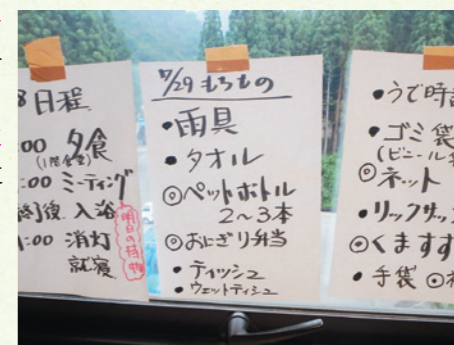 8日程
:00 夕食
(1階食堂)
:00 ミーティング
終了後 入浴
:00 消灯
就寝
明日の荷物
7/29 もちもの
•雨具
•タオル
◎ペットボトル
2～3本
◎おにぎり弁当
•ティッシュ
•ウェットティシュ
•うで時
•ゴミ袋
(ビニール
◎ネット
•リックサッ
◎くます
•手袋 ◎